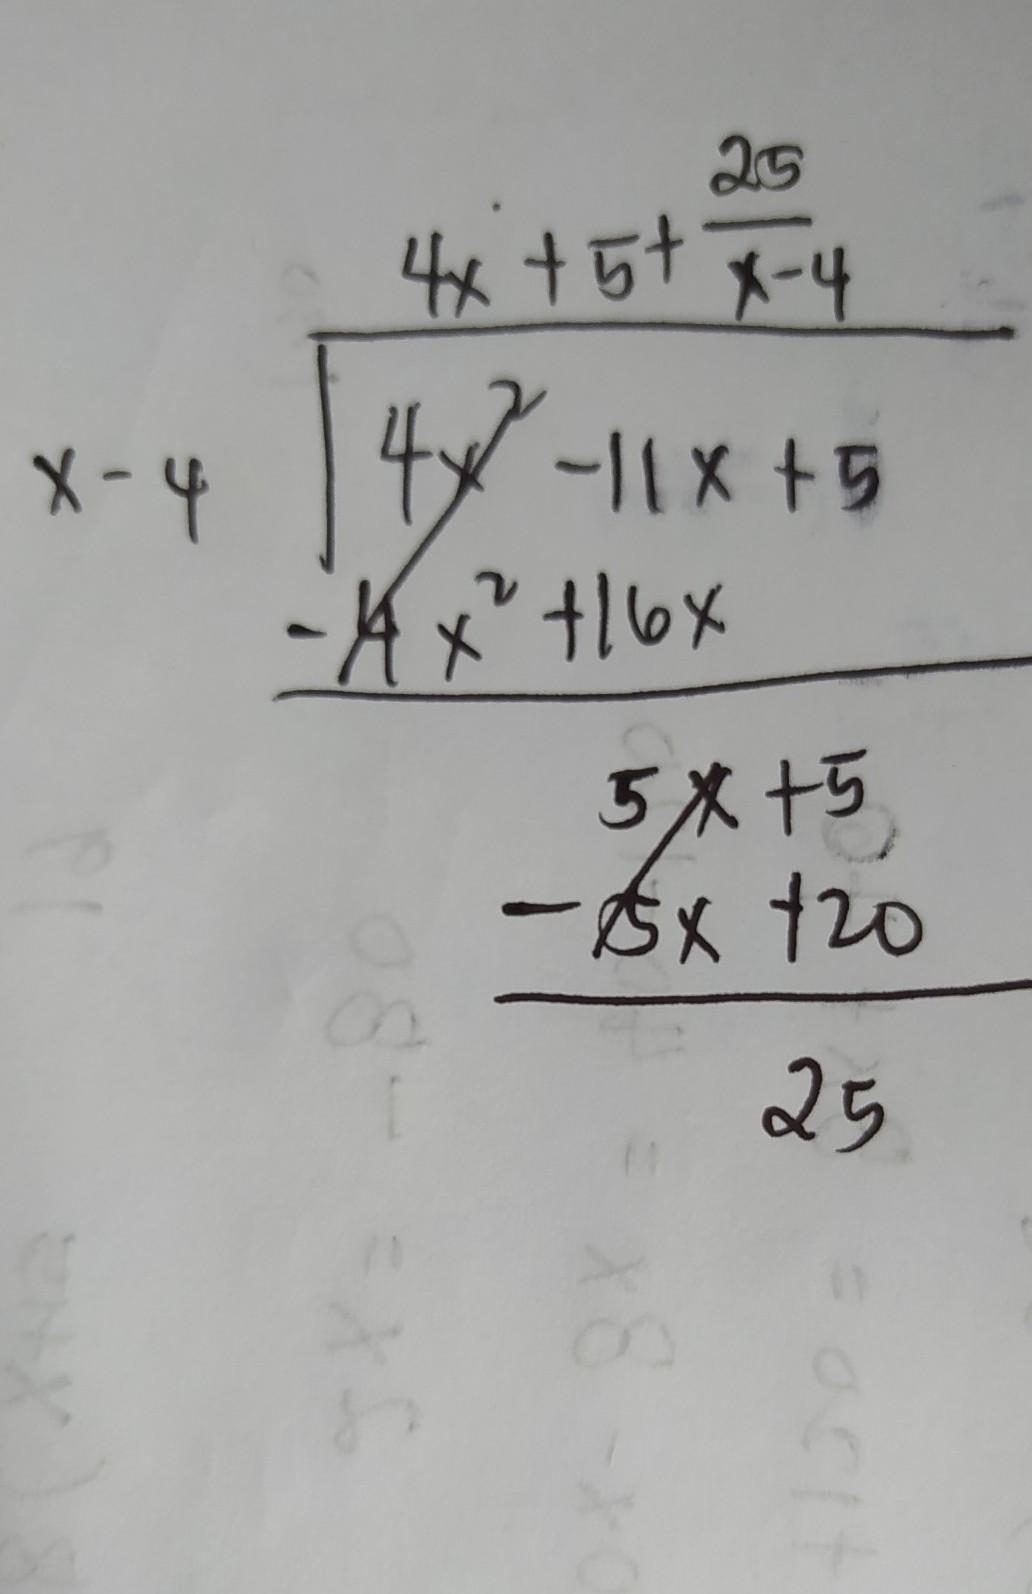 25
4x + 5 + x-4
x - 4 4x² -11x + 5
-4x² +16x
5x +5
-5x +20
25